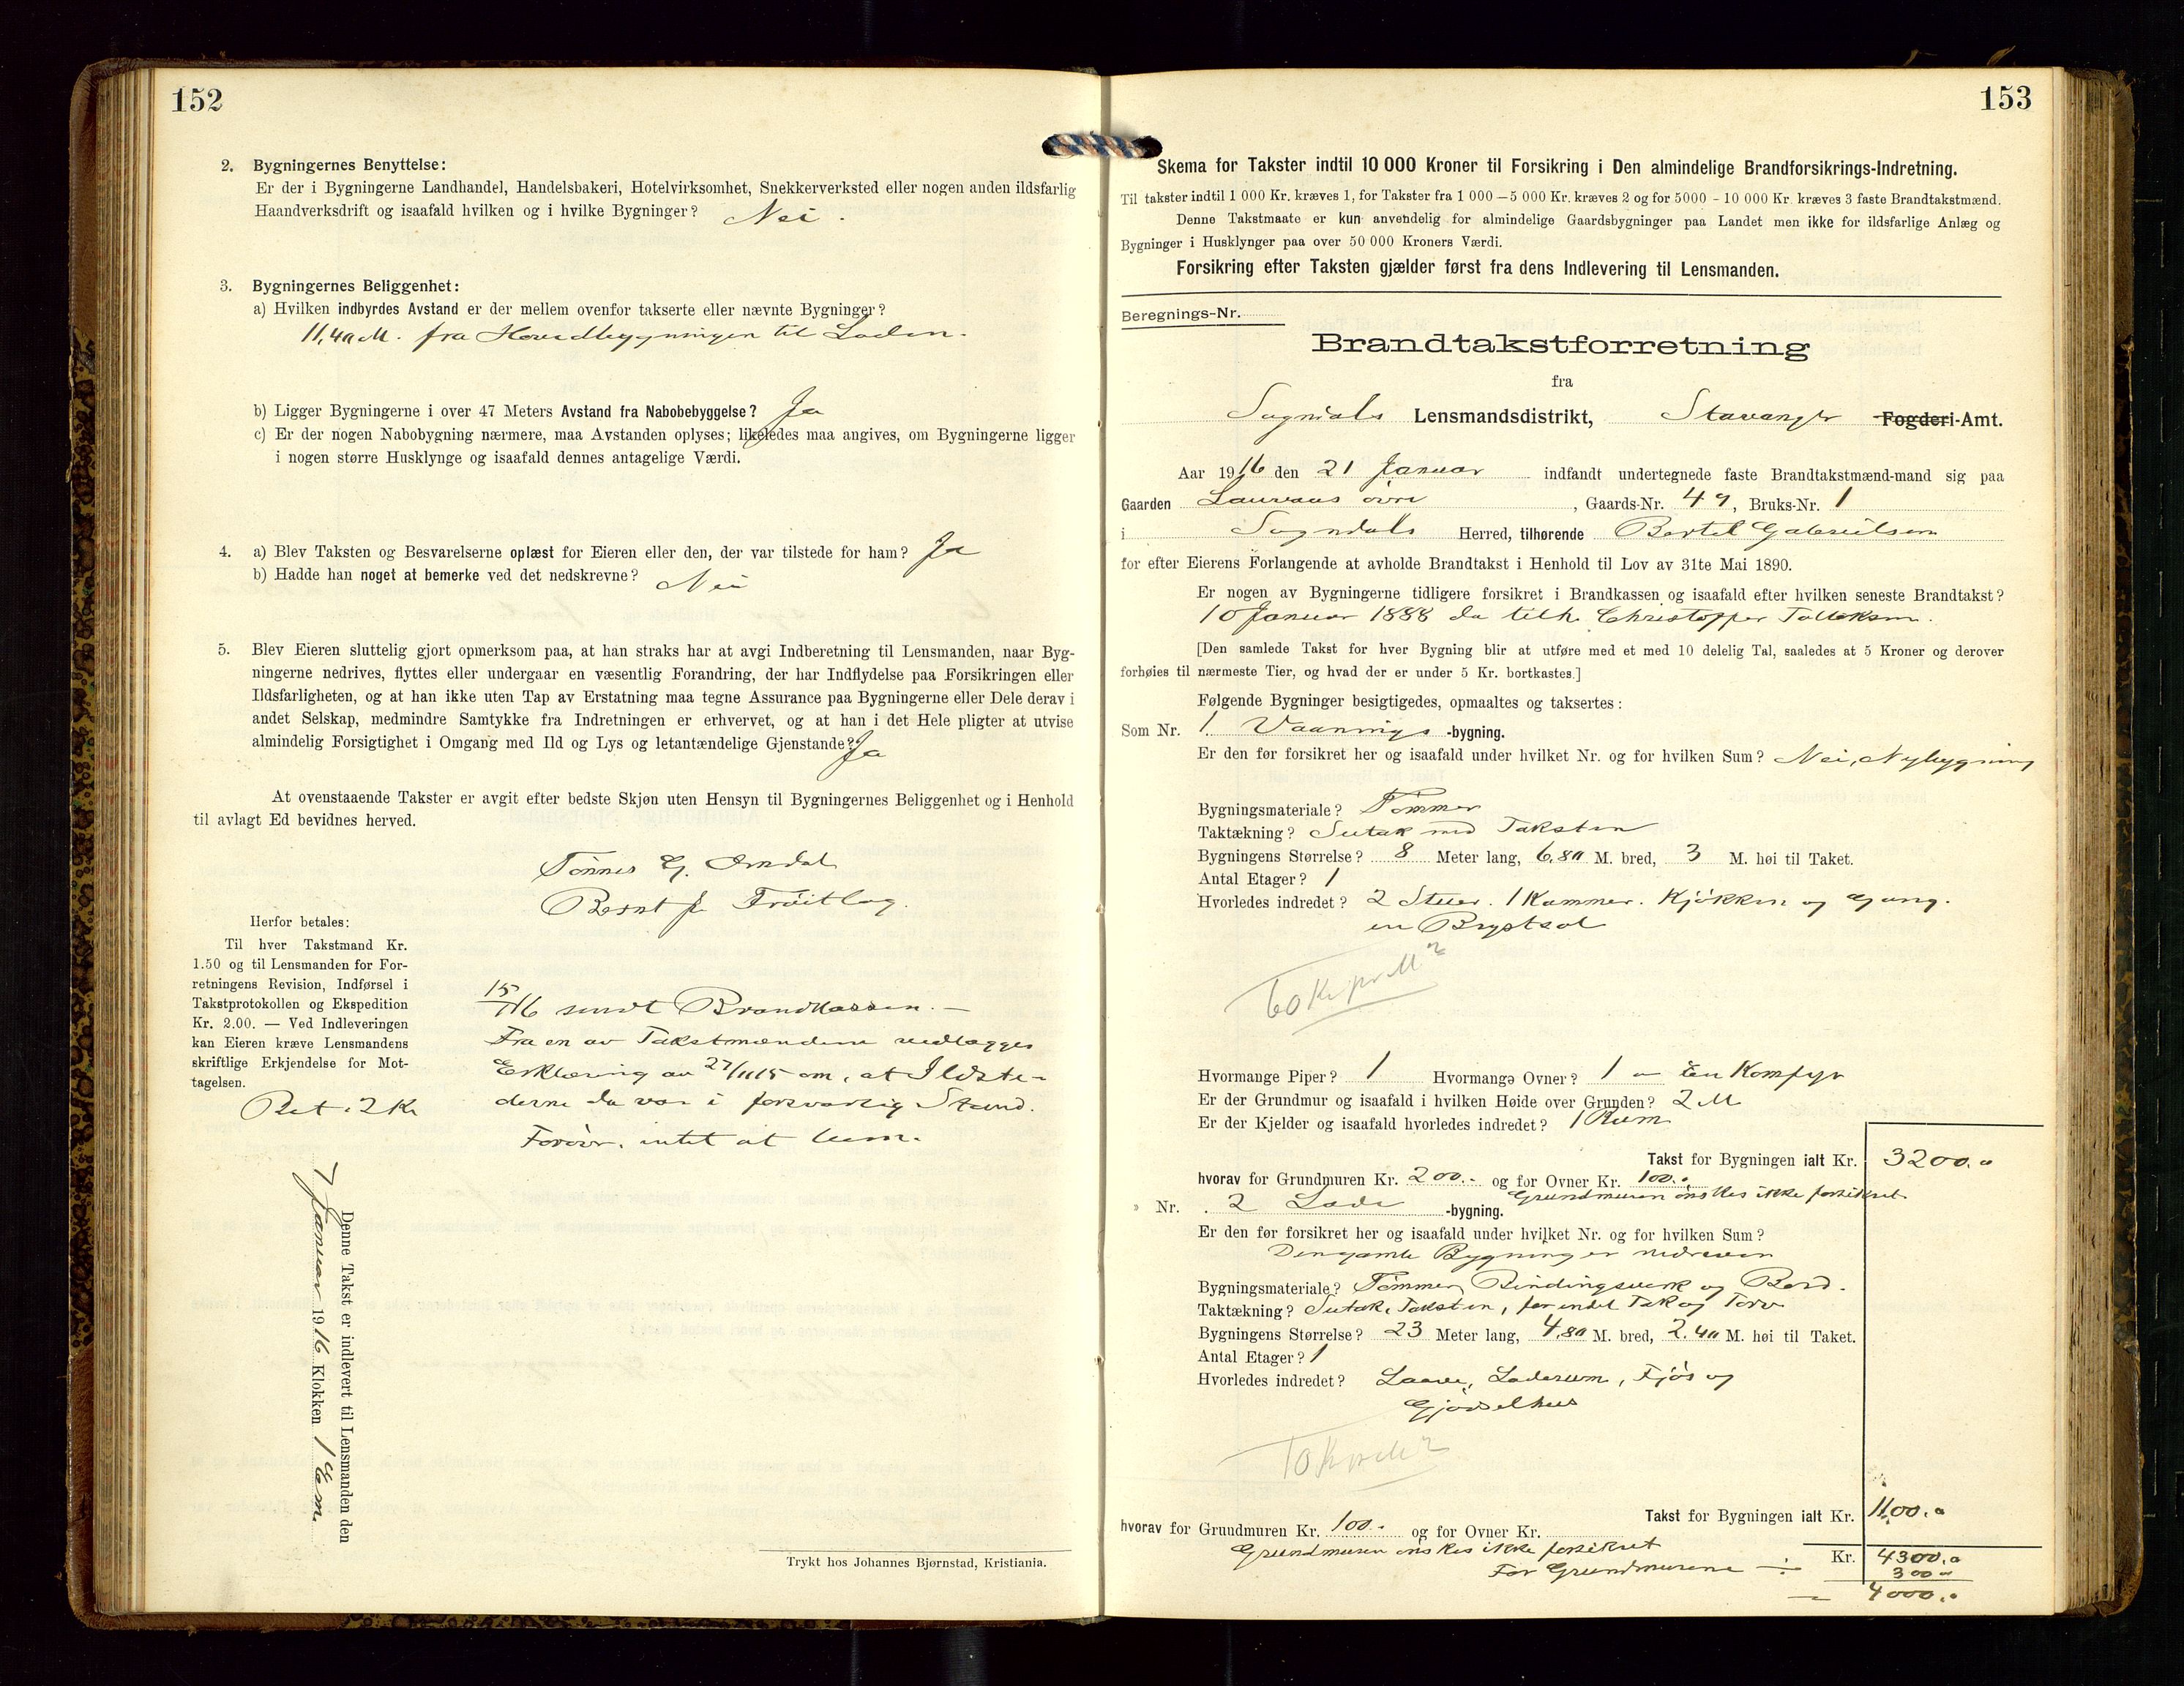 152
2. Bygningernes Benyttelse:
Er der i Bygningerne Landhandel, Handelsbakeri, Hotelvirksomhet, Snekkerverksted eller nogen anden ildsfarlig
Haandverksdrift og isaafald hvilken og i hvilke Bygninger? Nei.
3. Bygningernes Beliggenhet:
a) Hvilken indbyrdes Avstand er der mellem ovenfor takserte eller nævnte Bygninger?
11,40 M. fra Hovedbygningen til Laden.
b) Ligger Bygningerne i over 47 Meters Avstand fra Nabobebyggelse? Ja
c) Er der nogen Nabobygning nærmere, maa Avstanden oplyses; likeledes maa angives, om Bygningerne ligger
i nogen større Husklynge og isaafald dennes antagelige Værdi.
4. a) Blev Taksten og Besvarelserne oplæst for Eieren eller den, der var tilstede for ham? Ja
b) Hadde han noget at bemerke ved det nedskrevne? Nei
5. Blev Eieren sluttelig gjort opmerksom paa, at han straks har at avgi Indberetning til Lensmanden, naar Byg-
ningerne nedrives, flyttes eller undergaar en væsentlig Forandring, der har Indflydelse paa Forsikringen eller
Ildsfarligheten, og at han ikke uten Tap av Erstatning maa tegne Assurance paa Bygningerne eller Dele derav i
andet Selskap, medmindre Samtykke fra Indretningen er erhvervet, og at han i det Hele pligter at utvise
almindelig Forsigtighet i Omgang med Ild og Lys og letantændelige Gjenstande? Ja
At ovenstaaende Takster er avgit efter bedste Skjøn uten Hensyn til Bygningernes Beliggenhet og i Henhold
til avlagt Ed bevidnes herved.
Tønnes G. Omdal
Bernt J. Frøitlog.
Herfor betales:
Til hver Takstmand Kr.
1.50 og til Lensmanden for For-
retningens Revision, Indførsel i
Takstprotokollen og Ekspedition
Kr. 2.00. — Ved Indleveringen
kan Eieren kræve Lensmandens
skriftlige Erkjendelse for Mot-
tagelsen.
Bet. 2 Kr
sendt Brandkassen. —
Fra en av Takstmændene vedlægges
Erklæring av 27/11 15 om, at Ildste-
derne da var i forsvarlig Stand.
Forøvr. intet at bem.
Denne Takst er indlevert til Lensmanden den
7 Januar 1916 Klokken 1 Em.
Trykt hos Johannes Bjørnstad, Kristiania.
153
Skema for Takster indtil 10 000 Kroner til Forsikring i Den almindelige Brandforsikrings-Indretning.
Til takster indtil 1 000 Kr. kræves 1, for Takster fra 1 000 — 5 000 Kr. kræves 2 og for 5000 - 10 000 Kr. kræves 3 faste Brandtakstmænd.
Denne Takstmaate er kun anvendelig for almindelige Gaardsbygninger paa Landet men ikke for ildsfarlige Anlæg og
Bygninger i Husklynger paa over 50 000 Kroners Værdi.
Forsikring efter Taksten gjælder først fra dens Indlevering til Lensmanden.
Beregnings-Nr.
Brandtakstforretning
fra
Sogndals Lensmandsdistrikt, Stavanger Fogderi-Amt.
Aar 1916 den 21 Januar indfandt undertegnede faste Brandtakstmænd-mand sig paa
Gaarden Lauvaas øvre, Gaards-Nr. 49, Bruks-Nr. 1
i Sogndals Herred, tilhørende Bertel Gabrielsen
for efter Eierens Forlangende at avholde Brandtakst i Henhold til Lov av 31te Mai 1890.
Er nogen av Bygningerne tidligere forsikret i Brandkassen og isaafald efter hvilken seneste Brandtakst?
10 Januar 1888 da tilh. Christopher Tolleksen.
[Den samlede Takst for hver Bygning blir at utføre med et med 10 delelig Tal, saaledes at 5 Kroner og derover
forhøies til nærmeste Tier, og hvad der er under 5 Kr. bortkastes.]
Følgende Bygninger besigtigedes, opmaaltes og taksertes:
Som Nr. 1. Vaanings-bygning.
Er den før forsikret her og isaafald under hvilket Nr. og for hvilken Sum? Nei, Nybygning
Bygningsmateriale? Tømmer
Taktækning? Sutak med Taksten
Bygningens Størrelse? 8 Meter lang, 6,80 M. bred, 3 M. høi til Taket.
Antal Etager? 1
Hvorledes indredet? 2 Stuer. 1 Kammer. Kjøkken og Gang.
en Brystsal
60 Kr pr M2
Hvormange Piper? 1 Hvormange Ovner? 1 - En Komfyr
Er der Grundmur og isaafald i hvilken Høide over Grunden? 2 M
Er der Kjelder og isaafald hvorledes indredet? 1 Rum
Takst for Bygningen ialt Kr. 3200.-
hvorav for Grundmuren Kr. 200.- og for Ovner Kr. 100.-
Grundmuren ønskes ikke forsikret
» Nr. 2 Lade -bygning.
Er den før forsikret her og isaafald under hvilket Nr. og for hvilken Sum?
Den gamle Bygning er nedreven
Bygningsmateriale? Tømmer, Bindingsverk og Bord.
Taktækning? Sutak, Taksten, for endel Tak og Torv
Bygningens Størrelse? 23 Meter lang, 4,80 M. bred, 2.40 M. høi til Taket.
Antal Etager? 1
Hvorledes indredet? Laave, Laderum, Fjøs og
Gjødselhus
10 Kr pr M2
Takst for Bygningen ialt Kr. 1100.-
hvorav for Grundmuren Kr. 100.- og for Ovner Kr.
Grundmuren ønskes ikke forsikret
Kr. 4300.-
For Grundmurene 300 -
4000.-